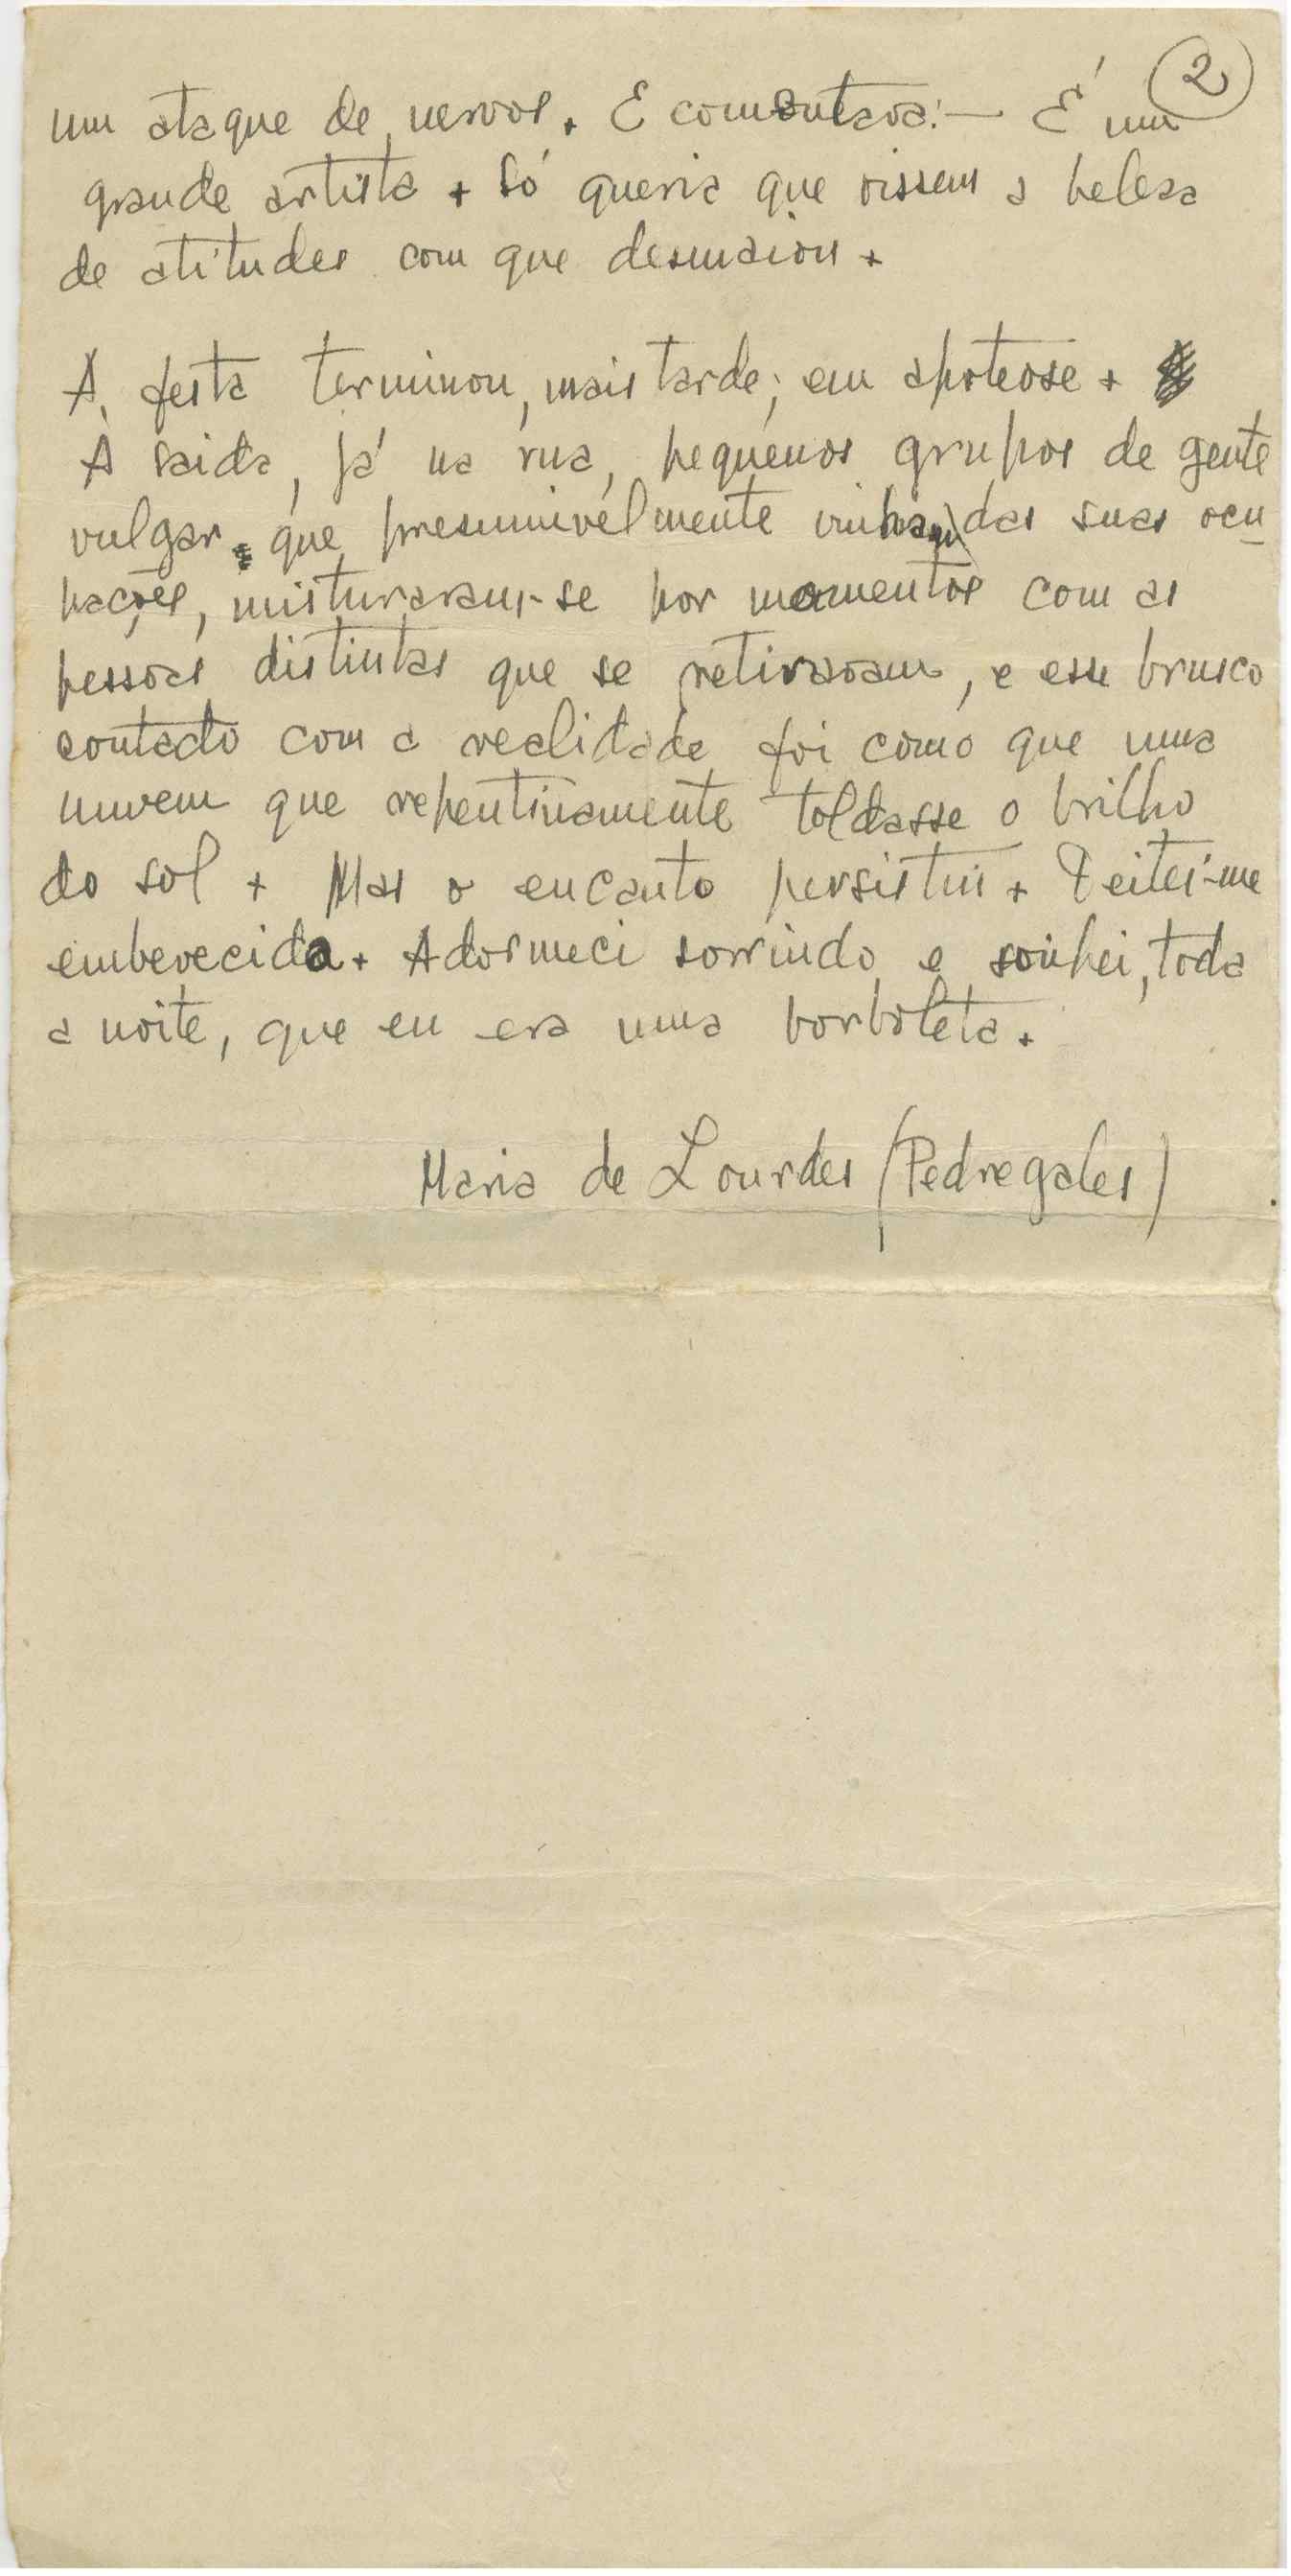 2
um ataque de nervos. E comentava: — É um
grande artista. Só queria que vissem a beleza
de atitudes com que desmaiou.
A festa terminou, mais tarde, em apoteose.
À saida, já na rua, pequenos grupos de gente
vulgar, que presumivélmente vinham das suas ocu
pações, misturavam-se por momentos com as
pessoas distintas que se retiravam, e esse brusco
contacto com a realidade foi como que uma
nuvem que repentinamente toldasse o brilho
do sol. Mas o encanto persistiu. Deitei-me
embevecida. Adormeci sorrindo e sonhei, toda
a noite, que eu era uma borboleta.
Maria de Lourdes (Pedregales)